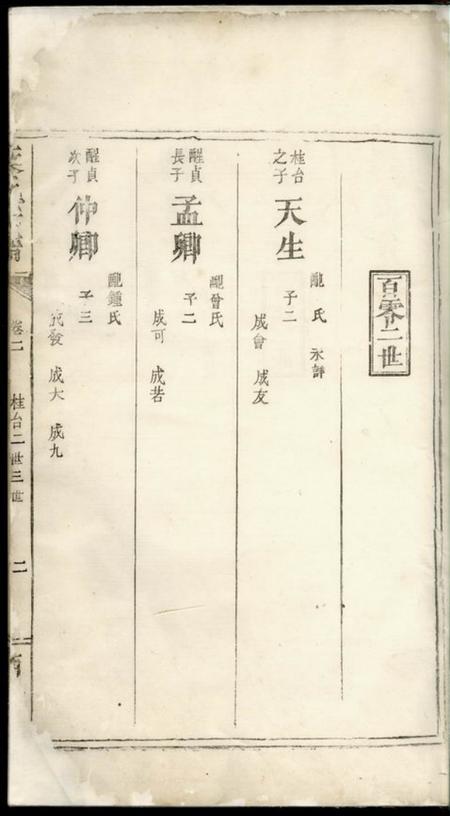 百零二世
桂台之子 天生
配 氏 永評
子二
成會 成友
醒貞長子 孟卿
配曾氏
子二
成可 成若
醒貞次子 仲卿
配鍾氏
子三
成發 成大 成九
卷二 桂台二世三世 二